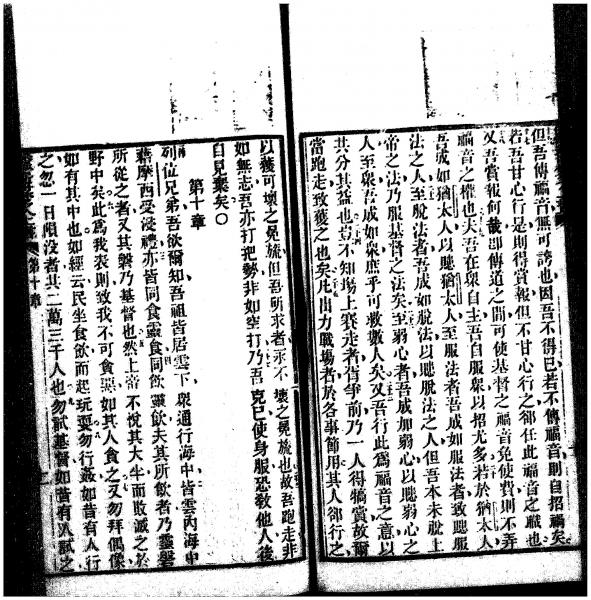 但吾傳福音無可誇也因吾不得已若不傳福音則自招禍矣
若吾甘心行是則得賞報但不甘心行之卻任此福音之職也
又吾賞報何哉即傳道之間可使基督之福音免使費則不弄
福音之權也夫吾在衆自主吾自服衆以招尤多若於猶太人
吾成如猶太人以賺猶太人至服法者吾成如服法者致賺服
法之人至脫法者吾成如脫法以賺脫法之人但吾本未脫上
帝之法乃服基督之法矣至弱心者吾成如弱心以賺弱心之
人至衆吾成如衆庶乎可救數人矣又吾行此為福音之意以
共分其益也豈不知場上賽走者皆爭前乃一人得犒賞故爾
當跑走致獲之也矣凡出力戰場者於各事節用其人卻行之
以獲可壞之冕旒但吾所求者永不壞之冕旒也故吾跑走非
如無志吾亦打把勢非如空打乃吾克己使身服恐教他人後
自見棄矣○
第十章
列位兄弟吾欲爾知吾祖皆居雲下衆通行海中皆雲內海中
藉摩西受浸禮亦皆同食靈食同飲靈飲夫其所飲者乃靈磐
所從之者又其磐乃基督也然上帝不悅其大半而敗滅之於
野中矣此為我表則致我不可貪惡如其人貪之又勿拜偶像
如有其中也如經云民坐食飲而起玩耍勿行姦如昔有人行
之忽一日隕沒者其二萬三千人也勿試基督如昔有人試之
第十章